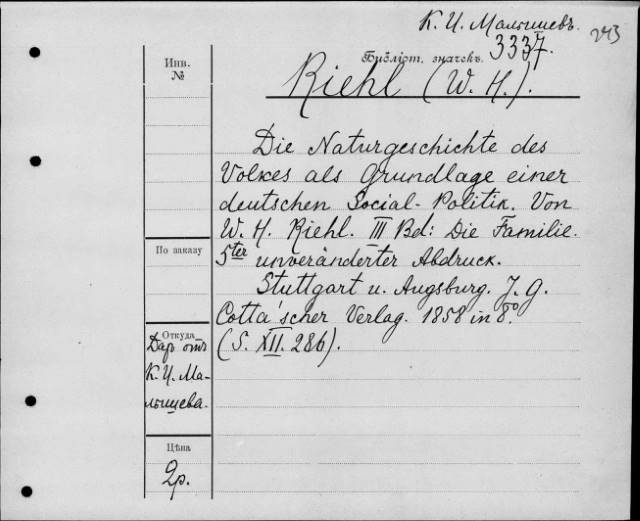 К. И. Малышевъ.
243
3337.
Библіот. значекъ.
Riehl (W. H.).
Инв.
№
Die Naturgeschichte des
Volkes als Grundlage einer
deutschen Social-Politik. Von
W. H. Riehl. III Bd: Die Familie.
5ter unveränderter Abdruck.
Stuttgart u. Augsburg. J. G.
Cotta'scher Verlag. 1858 in 8º.
(S. XII. 286).
По заказу
Откуда
Даръ отъ
К. И. Ма-
лышева.
Цѣна
2р.